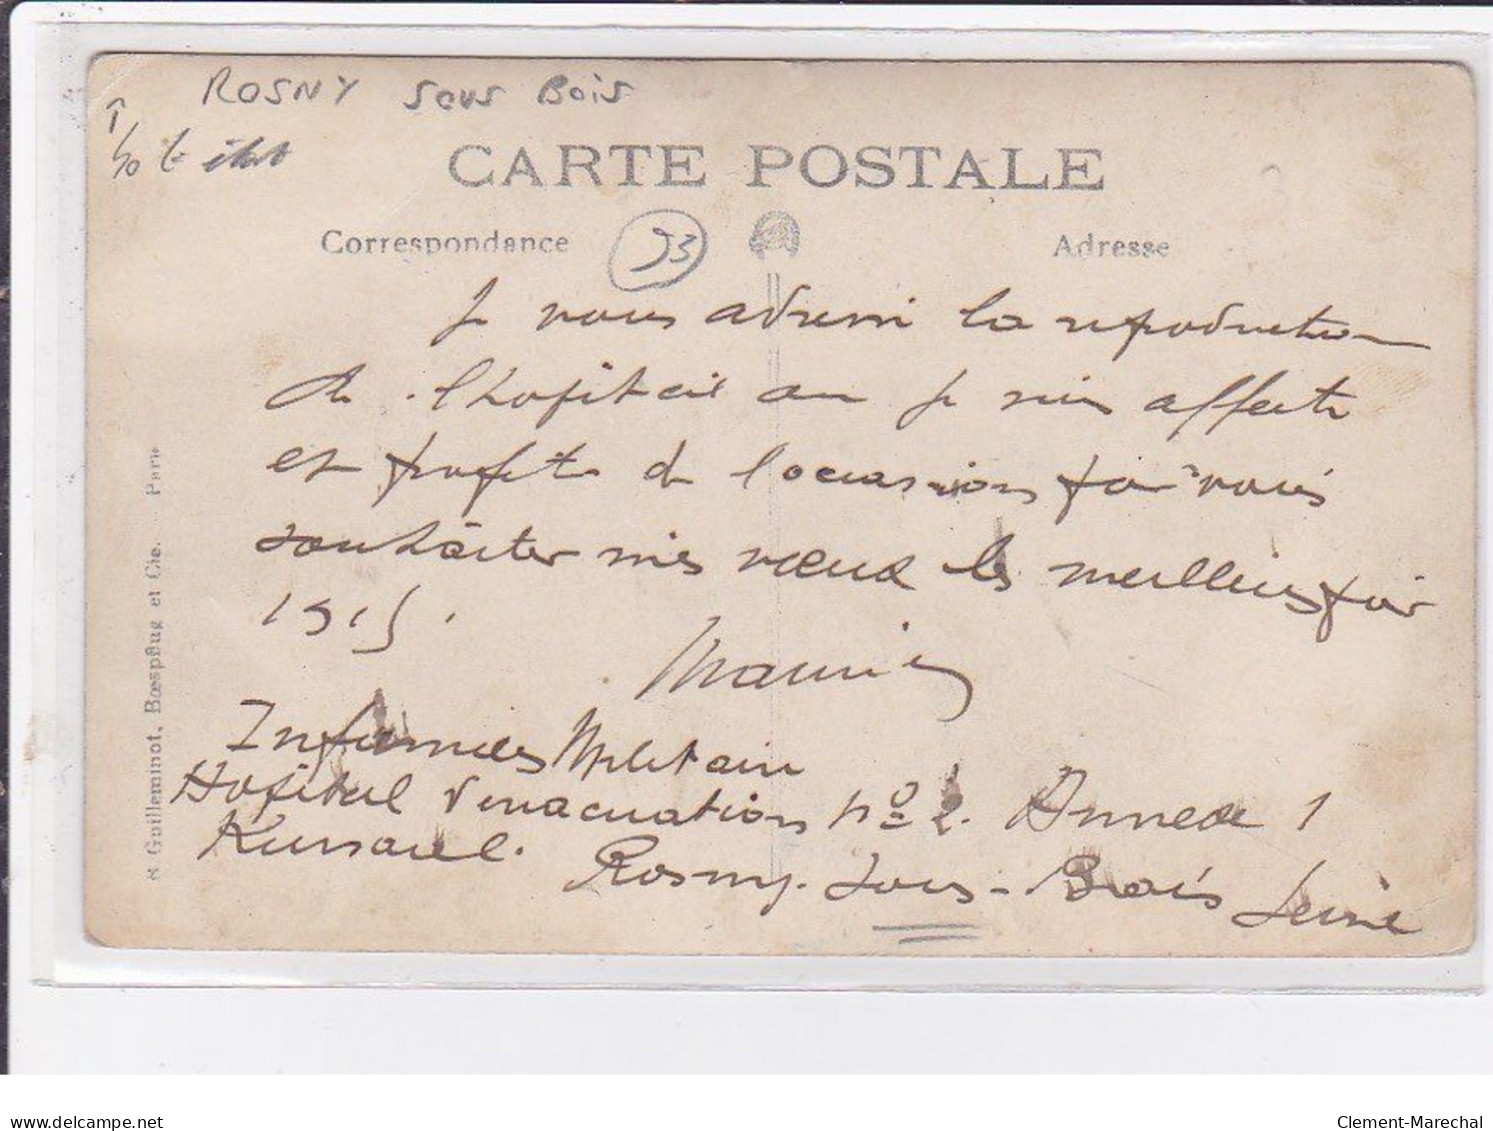 ROSNY sous Bois
CARTE POSTALE
Correspondance
93
Adresse
Je vous adresse la reproduction
de l'hopital ou je suis affecté
et profite de l'occasion pour vous
souhaiter mes vœux les meilleurs pour
1915.
Infirmier Militaire
Hopital d'evacuation nº 2. Annexe 1
Rosny-sous-Bois Seine
R. Guilleminot, Bœspflug et Cie. - Paris
delcampe.net
Clement-Marechal